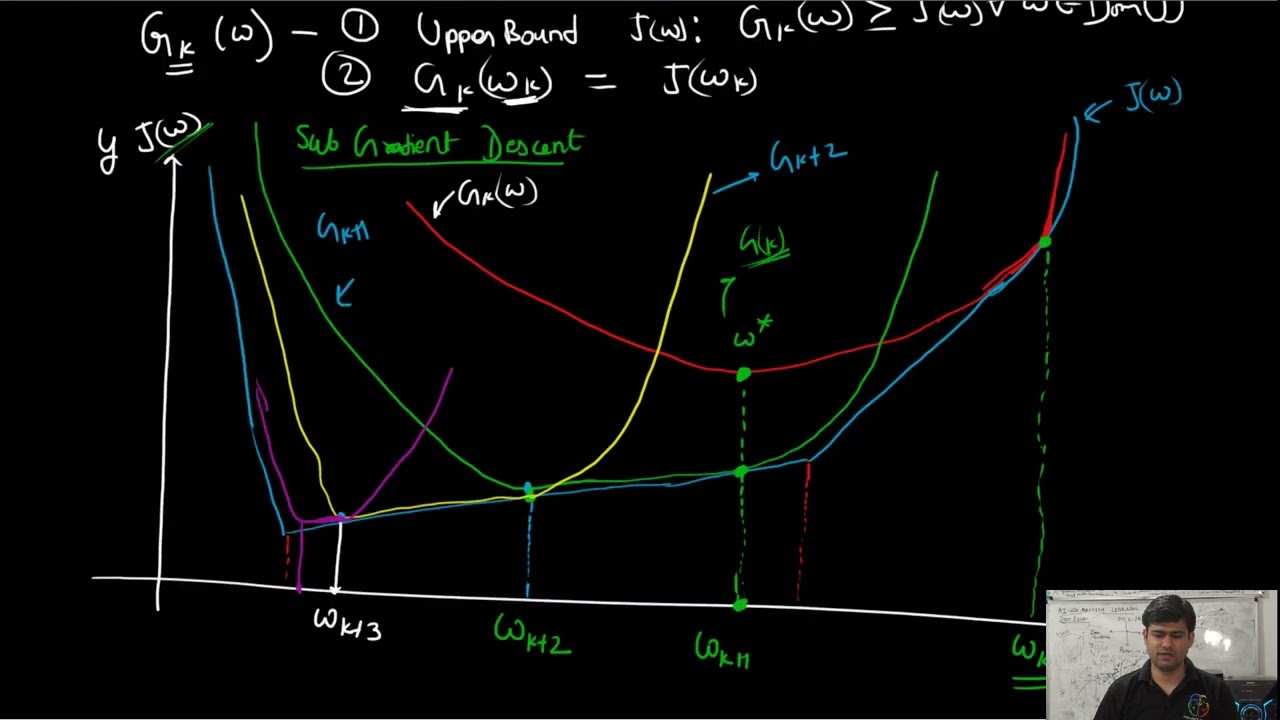 G_k (ω) – ① Upper Bound J(ω): G_k(ω) ≥ J(ω) ∀ ω ∈ Dom(J)
② G_k(ω_k) = J(ω_k)
y J(ω)
Sub Gradient Descent
J(ω)
G_k+2
G_k(ω)
G_k+1
G(k)
ω*
ω_k+3
ω_k+2
ω_k+1